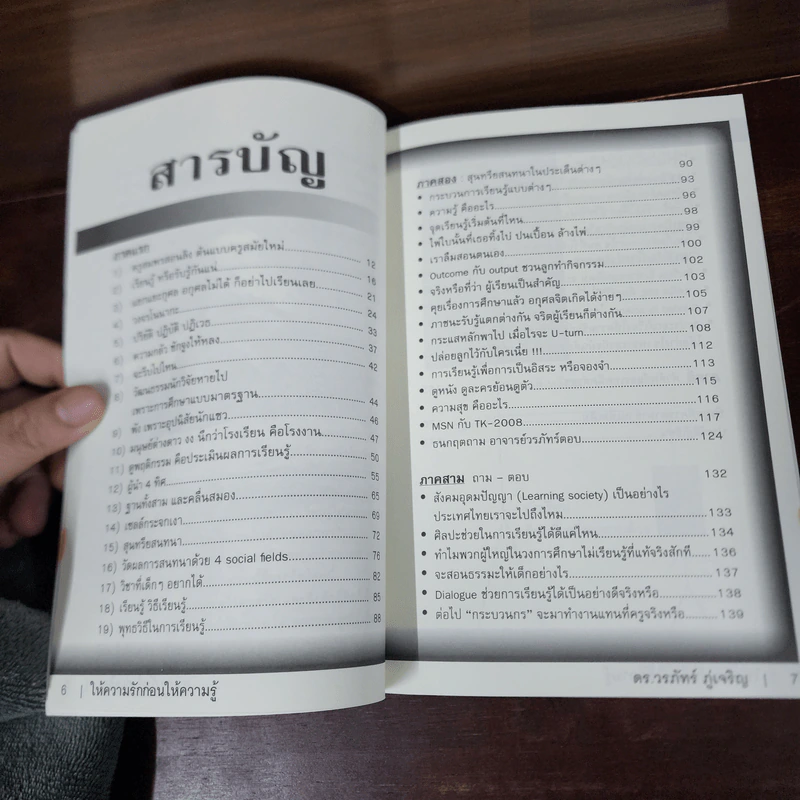 สารบัญ
ภาคแรก
1) ครูหมอพรสอนลิง ต้นแบบครูสมัยใหม่ 12
2) เรียนรู้ หรือรับรู้กันแน่ 16
3) แยกแยะกุศล อกุศลไม่ได้ ก็อย่าไปเรียนเลย 21
4) 24
5) ปริยัติ ปฏิบัติ ปฏิเวธ 33
6) ความกลัว ชักจูงให้หลง 37
7) จะรีบไปไหน 42
8) วัฒนธรรมนักวิจัยหายไป
เพราะการศึกษาแบบมาตรฐาน 44
9) พัง เพราะอุปนิสัยนักแซว 46
10) มนุษย์ต่างดาว งง นึกว่าโรงเรียน คือโรงงาน 47
11) ดูพฤติกรรม คือประเมินผลการเรียนรู้ 50
12) ผู้นำ 4 ทิศ 55
13) ฐานทั้งสาม และคลื่นสมอง 65
14) เซลล์กระจกเงา 69
15) สุนทรียสนทนา 72
16) วัดผลการสนทนาด้วย 4 social fields 76
17) วิชาที่เด็กๆ อยากได้ 82
18) เรียนรู้ วิธีเรียนรู้ 85
19) พุทธวิธีในการเรียนรู้ 88
6 | ให้ความรักก่อนให้ความรู้
ภาคสอง สุนทรียสนทนาในประเด็นต่างๆ 90
• กระบวนการเรียนรู้แบบต่างๆ 93
• ความรู้ คืออะไร 96
• จุดเรียนรู้เริ่มต้นที่ไหน 98
• ไพ่ใบนั้นที่เธอทิ้งไป ปนเปื้อน ล้างไพ่ 99
• เราลืมสอนตนเอง 100
• Outcome กับ output ชวนลูกทำกิจกรรม 102
• จริงหรือที่ว่า ผู้เรียนเป็นสำคัญ 103
• คุยเรื่องการศึกษาแล้ว อกุศลจิตเกิดได้ง่ายๆ 105
• ภาชนะรับรู้แตกต่างกัน จริตผู้เรียนก็ต่างกัน 107
• กระแสหลักพาไป เมื่อไรจะ U-turn 108
• ปล่อยลูกไว้กับใครเนี่ย !!! 112
• การเรียนรู้เพื่อการเป็นอิสระ หรือจองจำ 113
• ดูหนัง ดูละครย้อนดูตัว 115
• ความสุข คืออะไร 116
• MSN กับ TK-2008 117
• ธนกฤตถาม อาจารย์วรภัทร์ตอบ 124
ภาคสาม ถาม - ตอบ 132
• สังคมอุดมปัญญา (Learning society) เป็นอย่างไร
ประเทศไทยเราจะไปถึงไหม 133
• ศิลปะช่วยในการเรียนรู้ได้ดีแค่ไหน 134
• ทำไมพวกผู้ใหญ่ในวงการศึกษาไม่เรียนรู้ที่แท้จริงสักที 136
• จะสอนธรรมะให้เด็กอย่างไร 137
• Dialogue ช่วยการเรียนรู้ได้เป็นอย่างดีจริงหรือ 138
• ต่อไป “กระบวนกร” จะมาทำงานแทนที่ครูจริงหรือ 139
ดร.วรภัทร์ ภู่เจริญ | 7